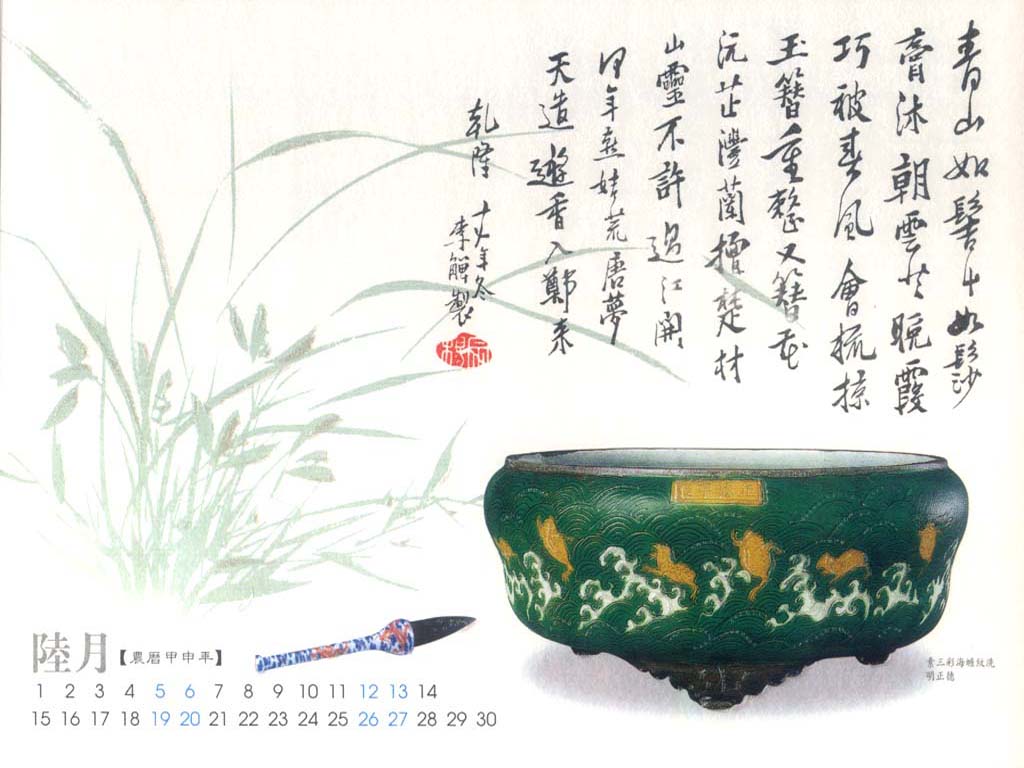 青山如髻斗如髿
膏沐朝雲共晚霞
巧被春風會梳掠
玉簪重整又簪花
沅芷澧蘭擅楚材
山靈不許過江開
年燕姞荒唐夢
天香入鄭來
乾隆十六年冬
李觶製
素三彩海蟾紋洗
明正德
陸月【農曆甲申年】
1 2 3 4 5 6 7 8 9 10 11 12 13 14
15 16 17 18 19 20 21 22 23 24 25 26 27 28 29 30